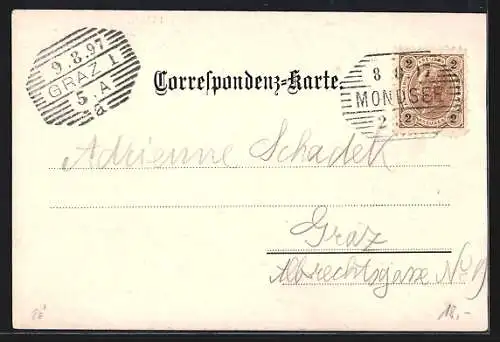 9.8.97
GRAZ 1
5.A
a
Correspondenz-Karte.
8 8 97
MONDSEE
2
2 2
2 2
Adrienne Schadek
Graz
Albrechtsgasse No
18.-